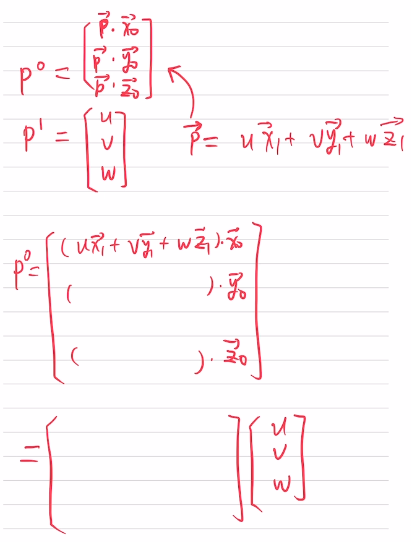 p⁰ = [ p⃗ · x⃗₀
p⃗ · y⃗₀
p⃗ · z⃗₀ ]
p¹ = [ u
v
w ]
p⃗ = u x⃗₁ + v y⃗₁ + w z⃗₁
p⁰ = [ (u x⃗₁ + v y⃗₁ + w z⃗₁) · x⃗₀
( ) · y⃗₀
( ) · z⃗₀ ]
= [ ] [ u
v
w ]